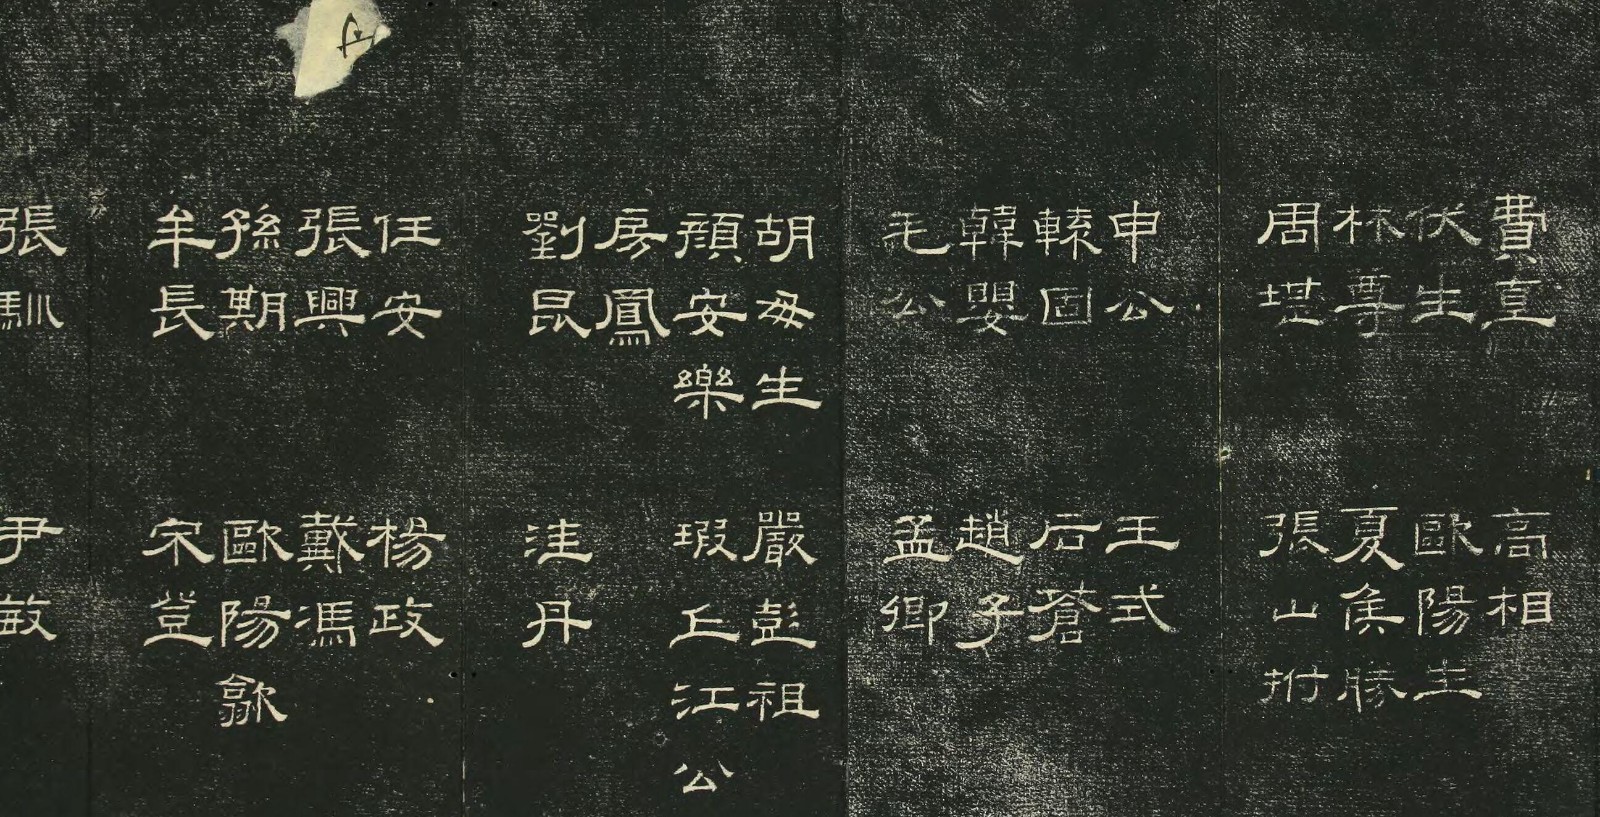 費直 高相
伏生 歐陽生
林尊 夏侯勝
周堪 張山拊
申公 王式
轅固 后蒼
韓嬰 趙子
毛公 孟卿
胡毋生 嚴彭祖
顏安樂 瑕丘江公
房鳳
劉昆 洼丹
任安 楊政
張興 戴馮
孫期 歐陽歙
牟長 宋登
張馴 尹敏